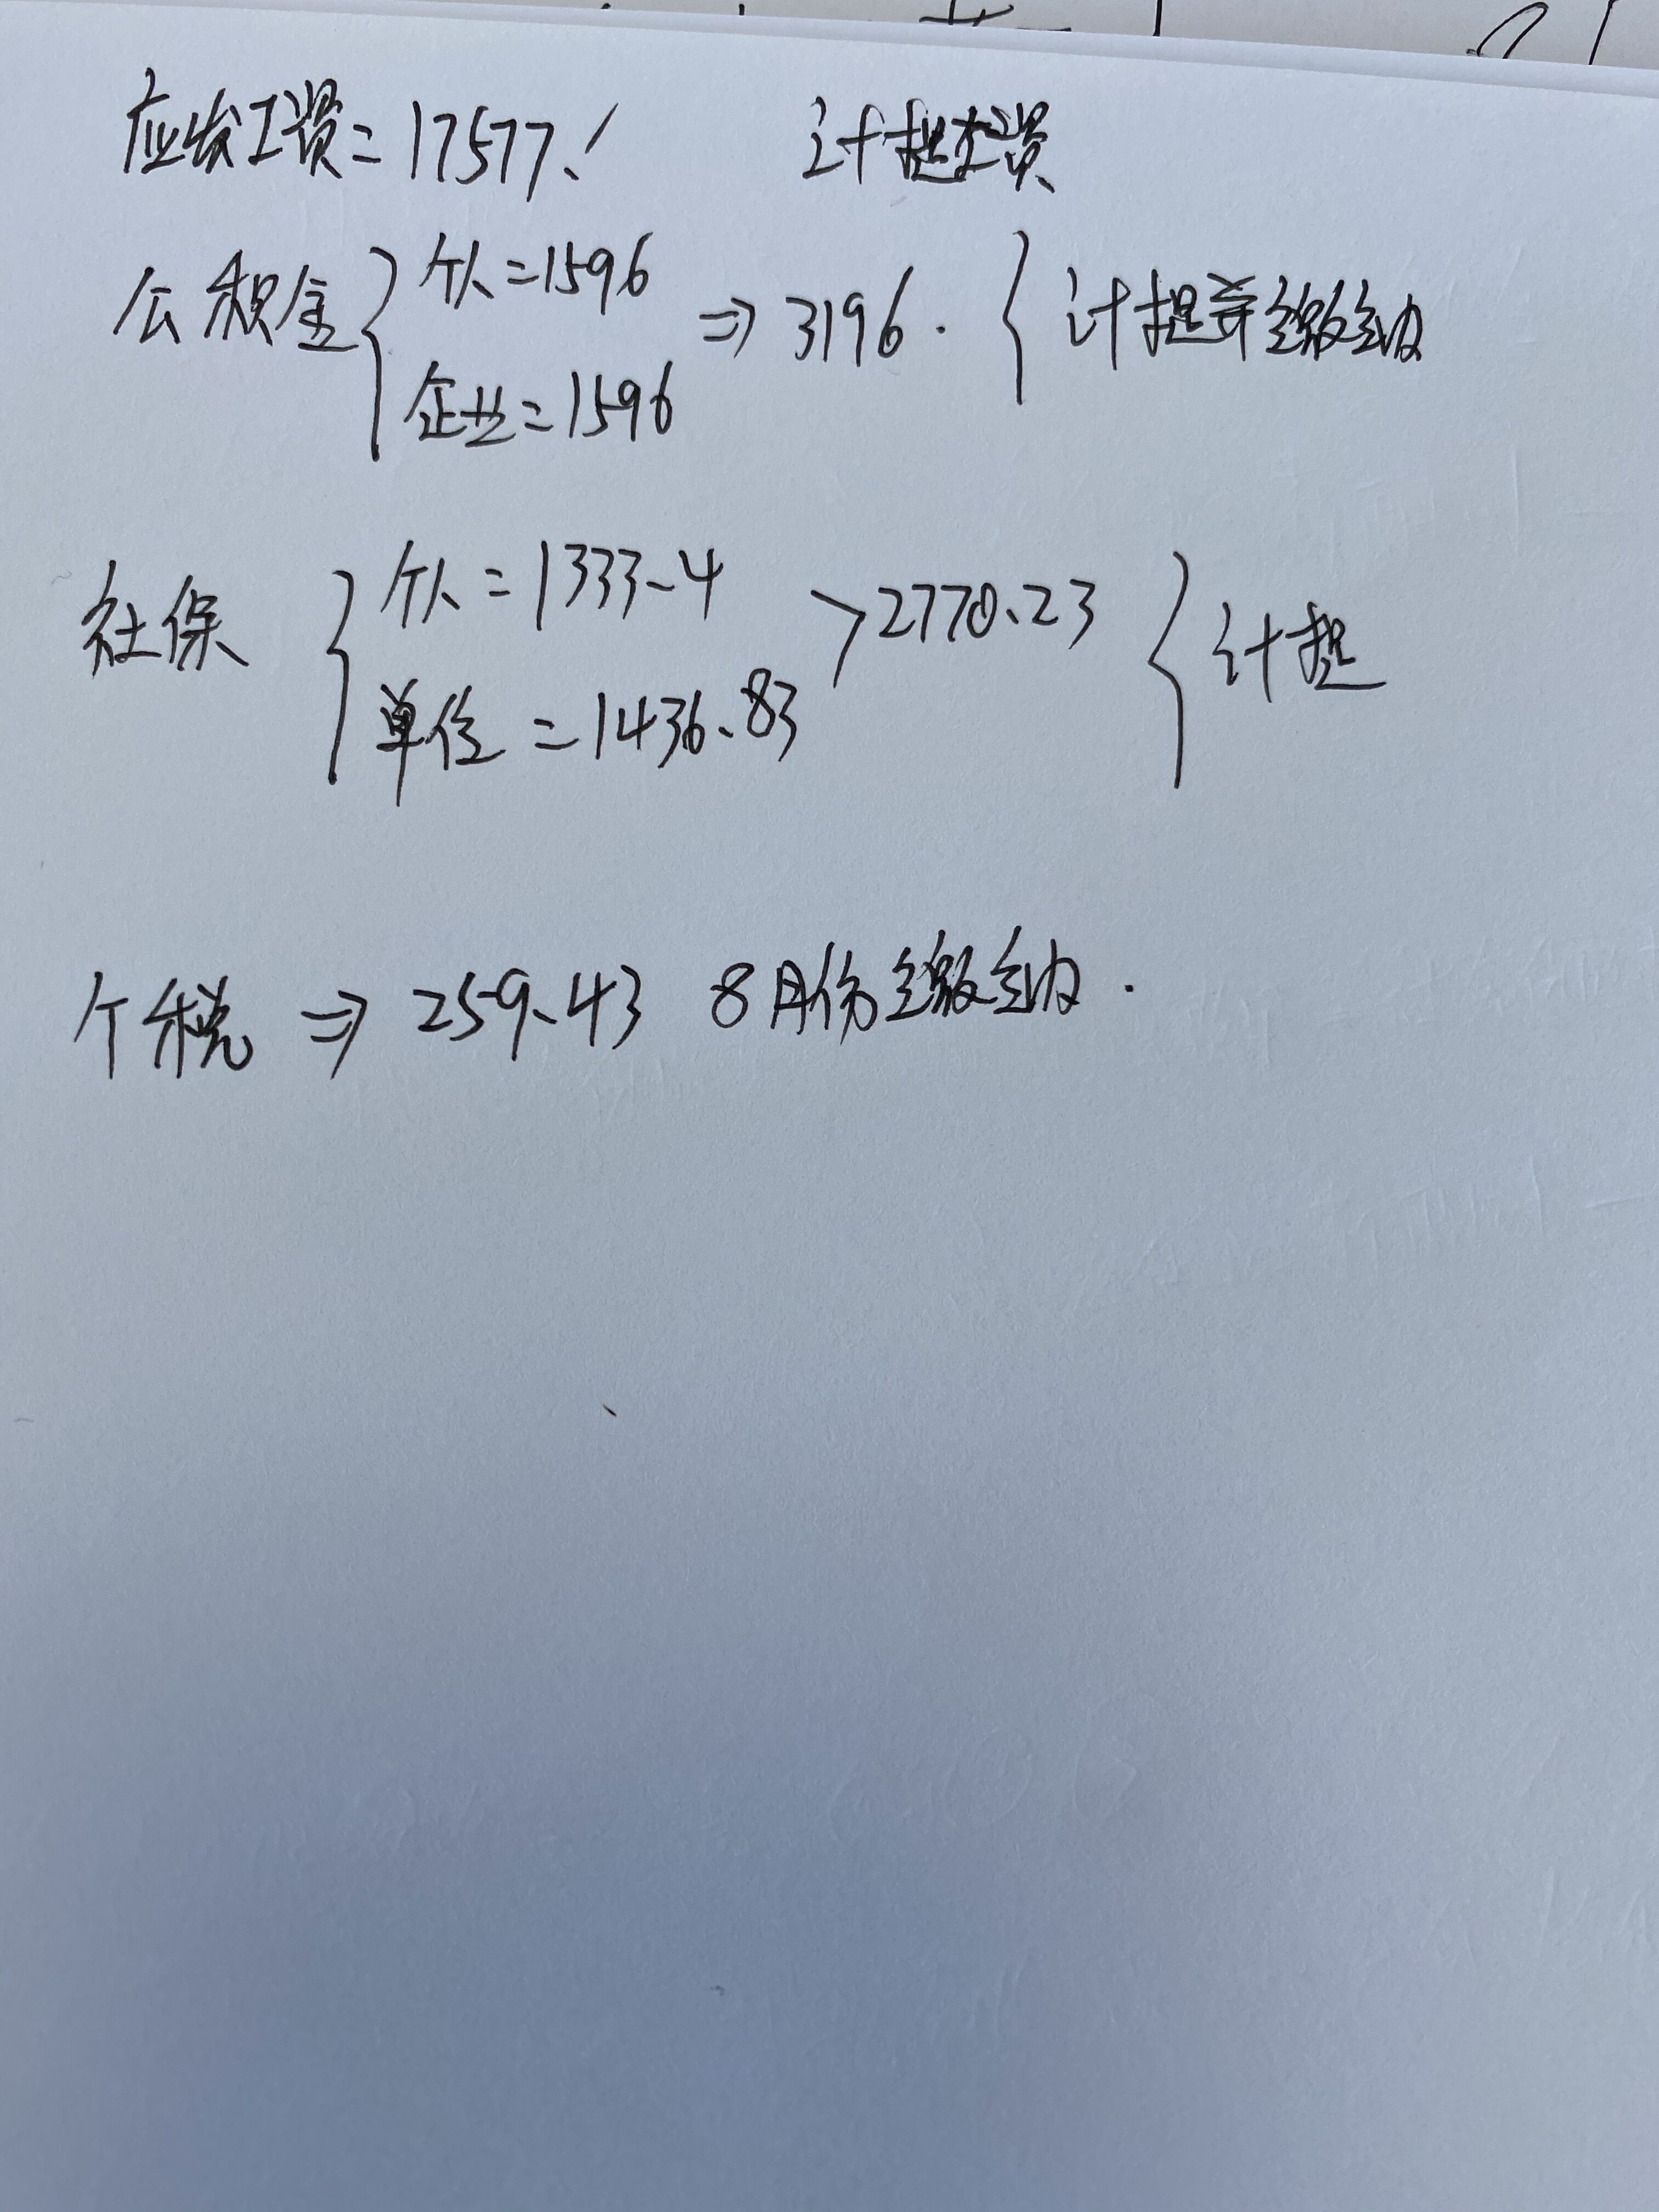 应发工资=17577.1 计提工资
公积金 { 个人=1596 ⇒ 3196. { 计提并缴纳
企业=1596
社保 { 个人=1333.4 > 2770.23 { 计提
单位=1436.83
个税 ⇒ 259.43 8月份缴纳.